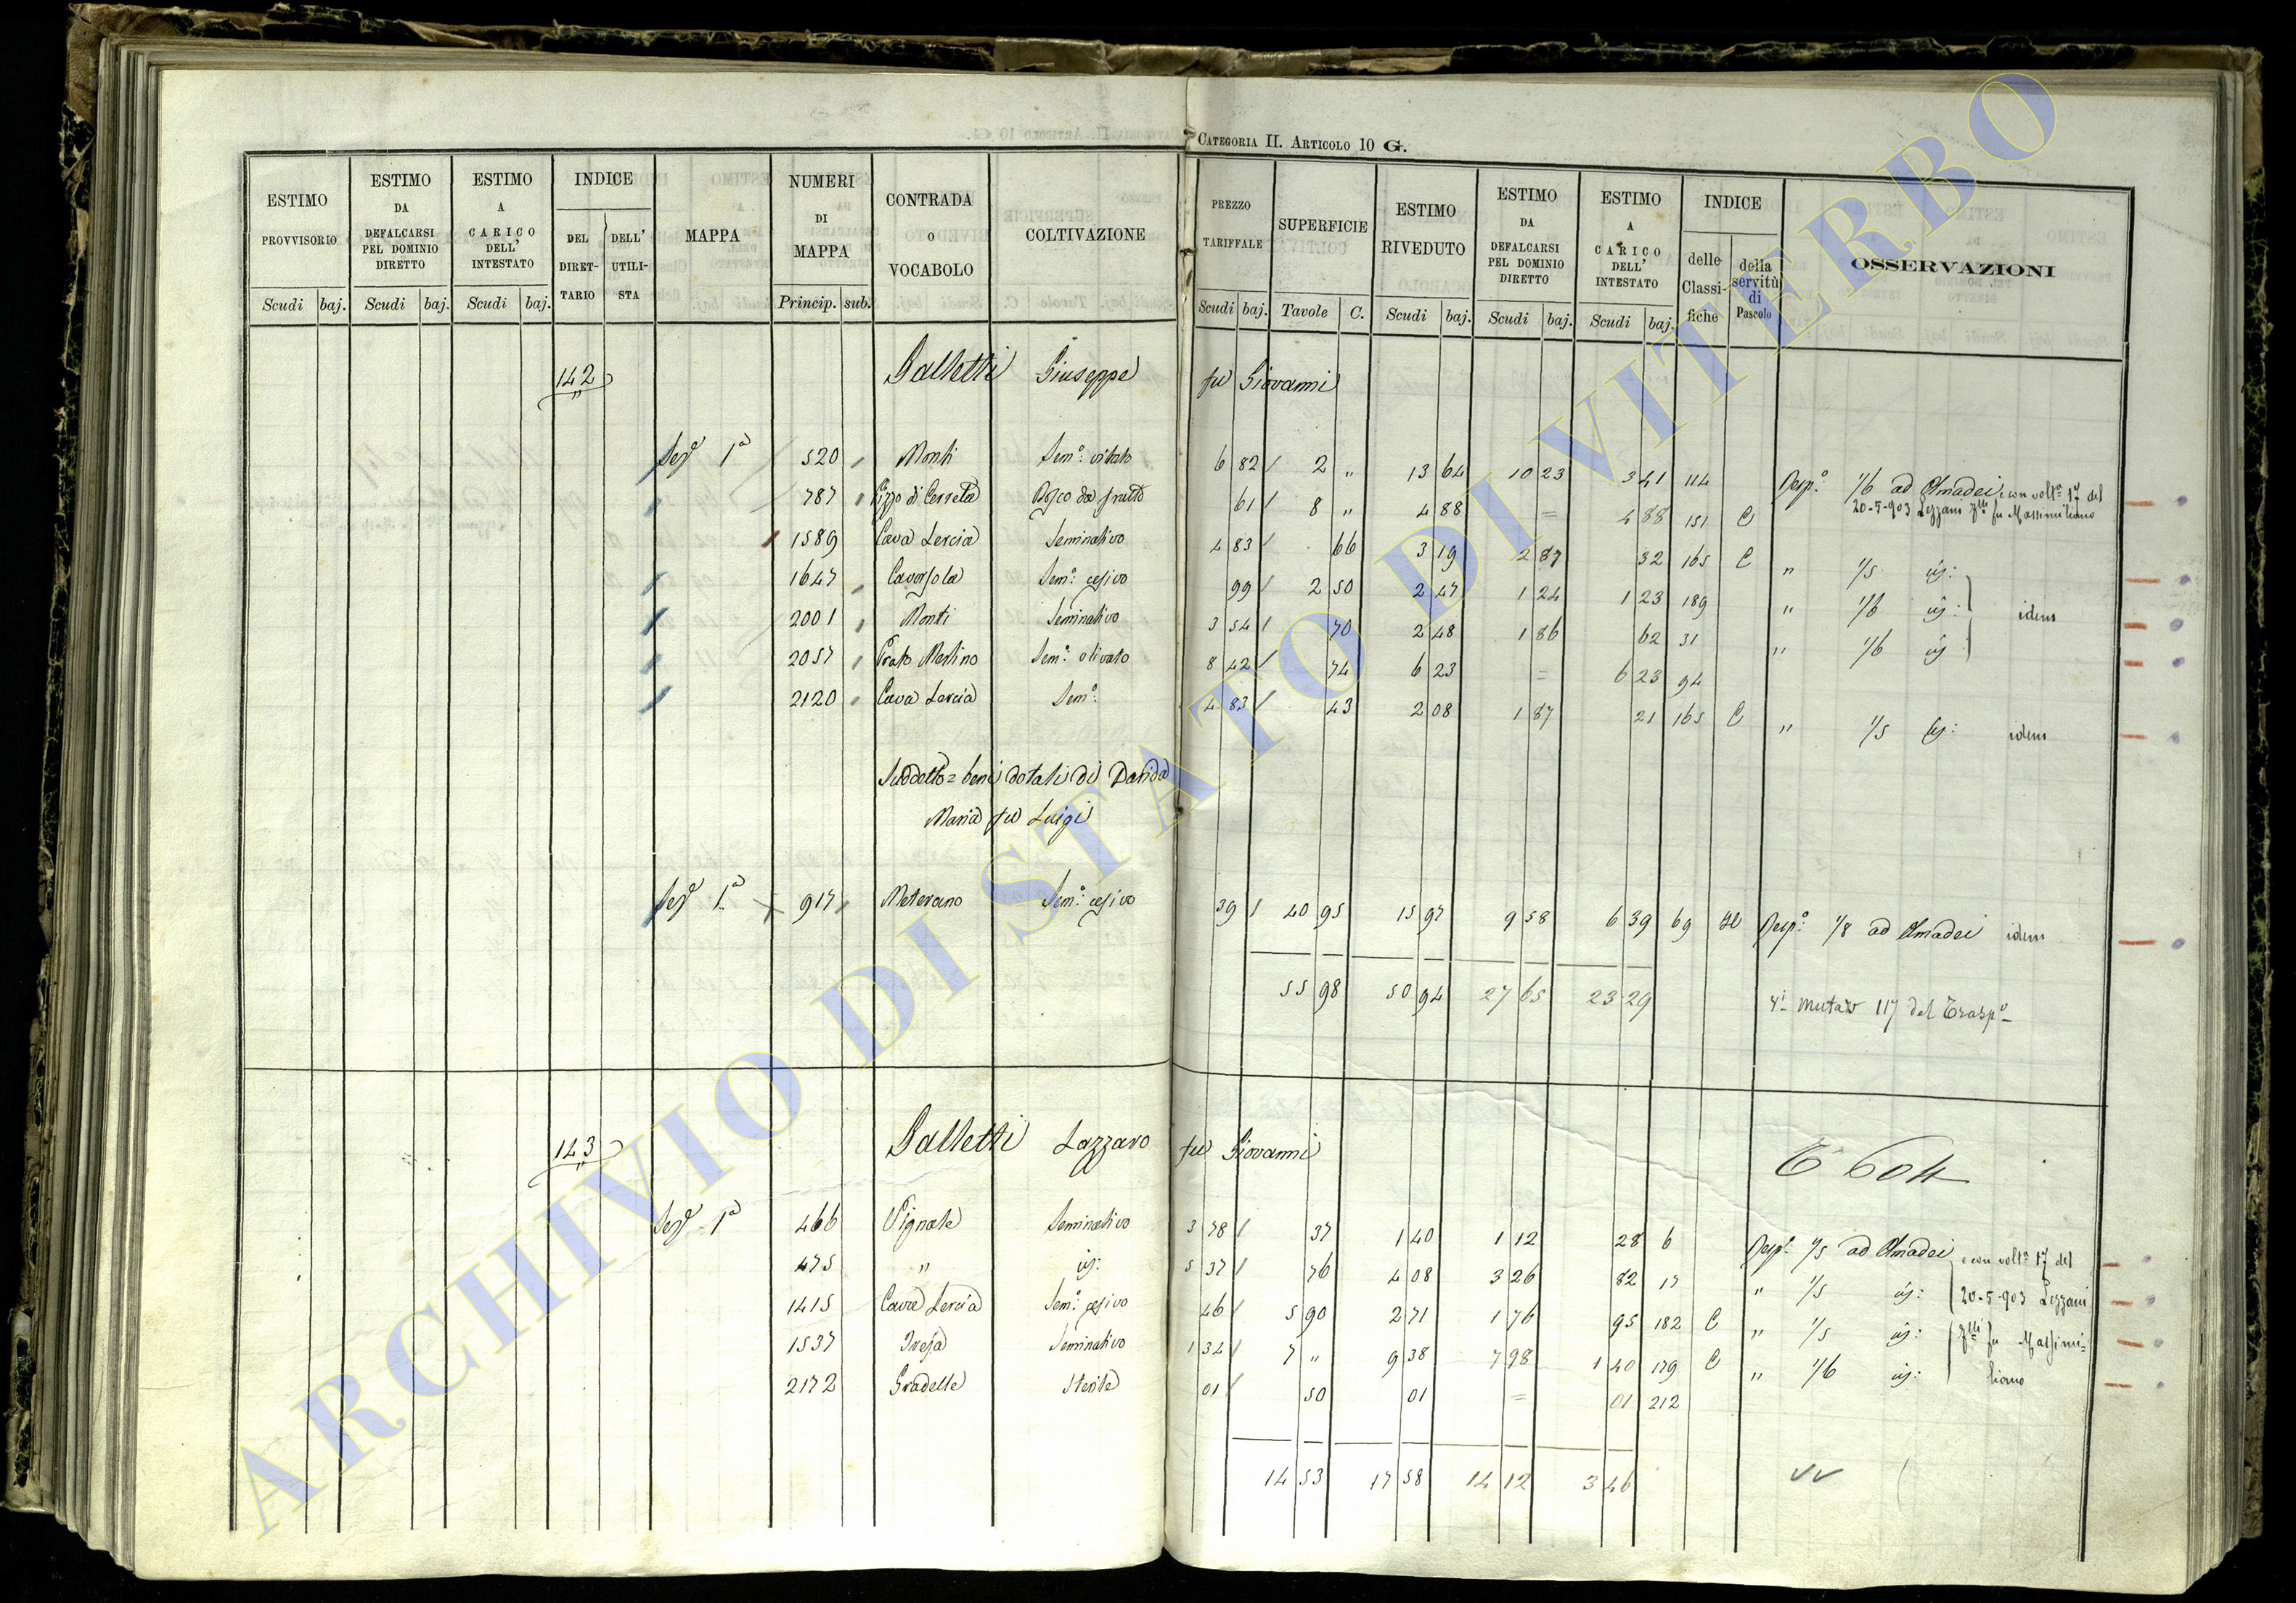 CATEGORIA II. ARTICOLO 10 G.
ESTIMO PROVVISORIO Scudi baj.
ESTIMO DA DEFALCARSI PEL DOMINIO DIRETTO Scudi baj.
ESTIMO A CARICO DELL' INTESTATO Scudi baj.
INDICE DEL DIRETTARIO DELL' UTILISTA
MAPPA
NUMERI DI MAPPA Princip. sub.
CONTRADA O VOCABOLO
COLTIVAZIONE
PREZZO TARIFFALE Scudi baj.
SUPERFICIE Tavole C.
ESTIMO RIVEDUTO Scudi baj.
ESTIMO DA DEFALCARSI PEL DOMINIO DIRETTO Scudi baj.
ESTIMO A CARICO DELL' INTESTATO Scudi baj.
INDICE delle Classifiche della servitù di Pascolo
OSSERVAZIONI
142 Balletti Giuseppe fu Giovanni
Sezᵉ 1ª 520 Monti Semº: vitato 6 82 2 " 13 64 10 23 3 41 114 Respº: 1/6 ad Amadei e con voltª 17 del
20-5-903 Lezzani flli fu Massimiliano
787 Pizzo di Cerreta Bosco da frutto 61 8 " 4 88 = 4 88 151 C
1589 Cava Lercia Seminativo 4 83 66 3 19 2 87 32 165 C " 1/5 iẛ:
1647 Semº: cesivo 99 2 50 2 47 1 24 1 23 189 " 1/6 iẛ: idem
2001 Monti Seminativo 3 54 70 2 48 1 86 62 31 " 1/6 iẛ
2057 Prato Merlino Semº: olivato 8 42 74 6 23 = 6 23 94
2120 Cava Lercia Semº: 4 83 43 2 08 1 87 21 165 C " 1/5 iẛ: idem
Suddetto = beni dotali di Danida
Maria fu Luigi
Sezᵉ 1ª 917 Meterano Semº: cesivo 39 40 95 15 97 9 58 6 39 69 Respº: 1/8 ad Amadei idem
55 98 50 94 27 65 23 29 117 del Traspº
143 Balletti Lazzaro fu Giovanni
T 604
Sezᵉ 1ª 466 Vignale Seminativo 3 78 37 1 40 1 12 28 6 Respº: 1/5 ad Amadei e con voltª 17 del
475 " iẛ: 5 37 76 4 08 3 26 82 17 " 1/5 iẛ: 20-5-903 Lezzani
1415 Cava Lercia Semº: cesivo 46 5 90 2 71 1 76 95 182 C " 1/5 iẛ: flli fu Massimi-
1537 Seminativo 1 34 7 " 9 38 7 98 1 40 179 C " 1/6 iẛ: liano
2172 Gradelle Sterile 01 50 01 = 01 212
14 53 17 58 14 12 3 46
ARCHIVIO DI STATO DI VITERBO